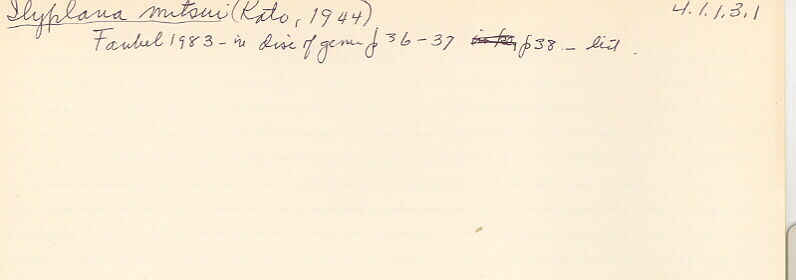 Ilyplana mitsui (Kato, 1944) 4.1.1.3.1
Faubel 1983 - in disc of genus p 36-37 p38 - list.